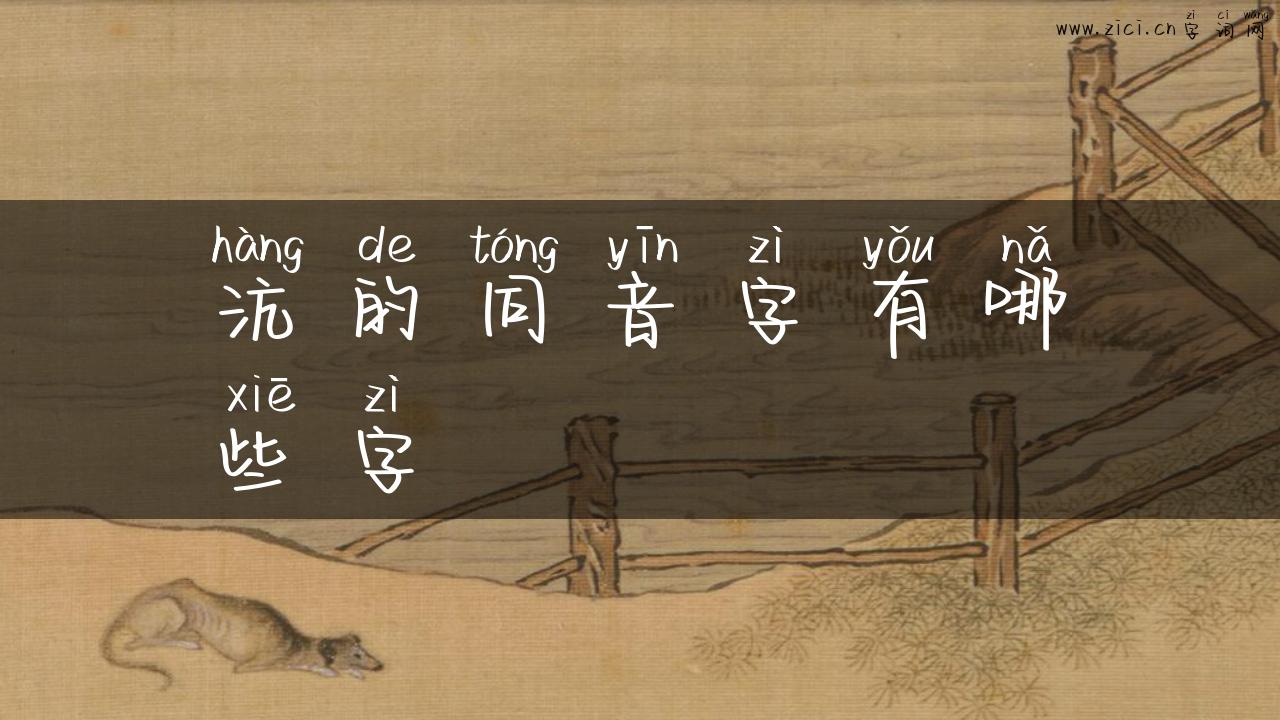 zì cí wǎng
www.zici.cn 字词网
hàng de tóng yīn zì yǒu nǎ
沆的同音字有哪
xiē zì
些字